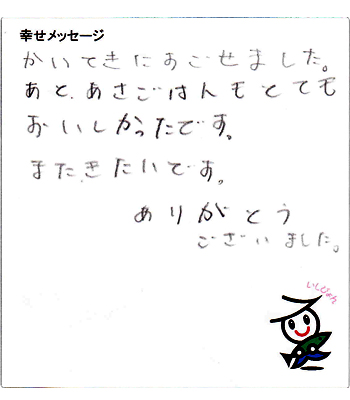 幸せメッセージ
かいてきにすごせました。
あと、あさごはんもとても
おいしかったです。
またきたいです。
ありがとう
ございました。